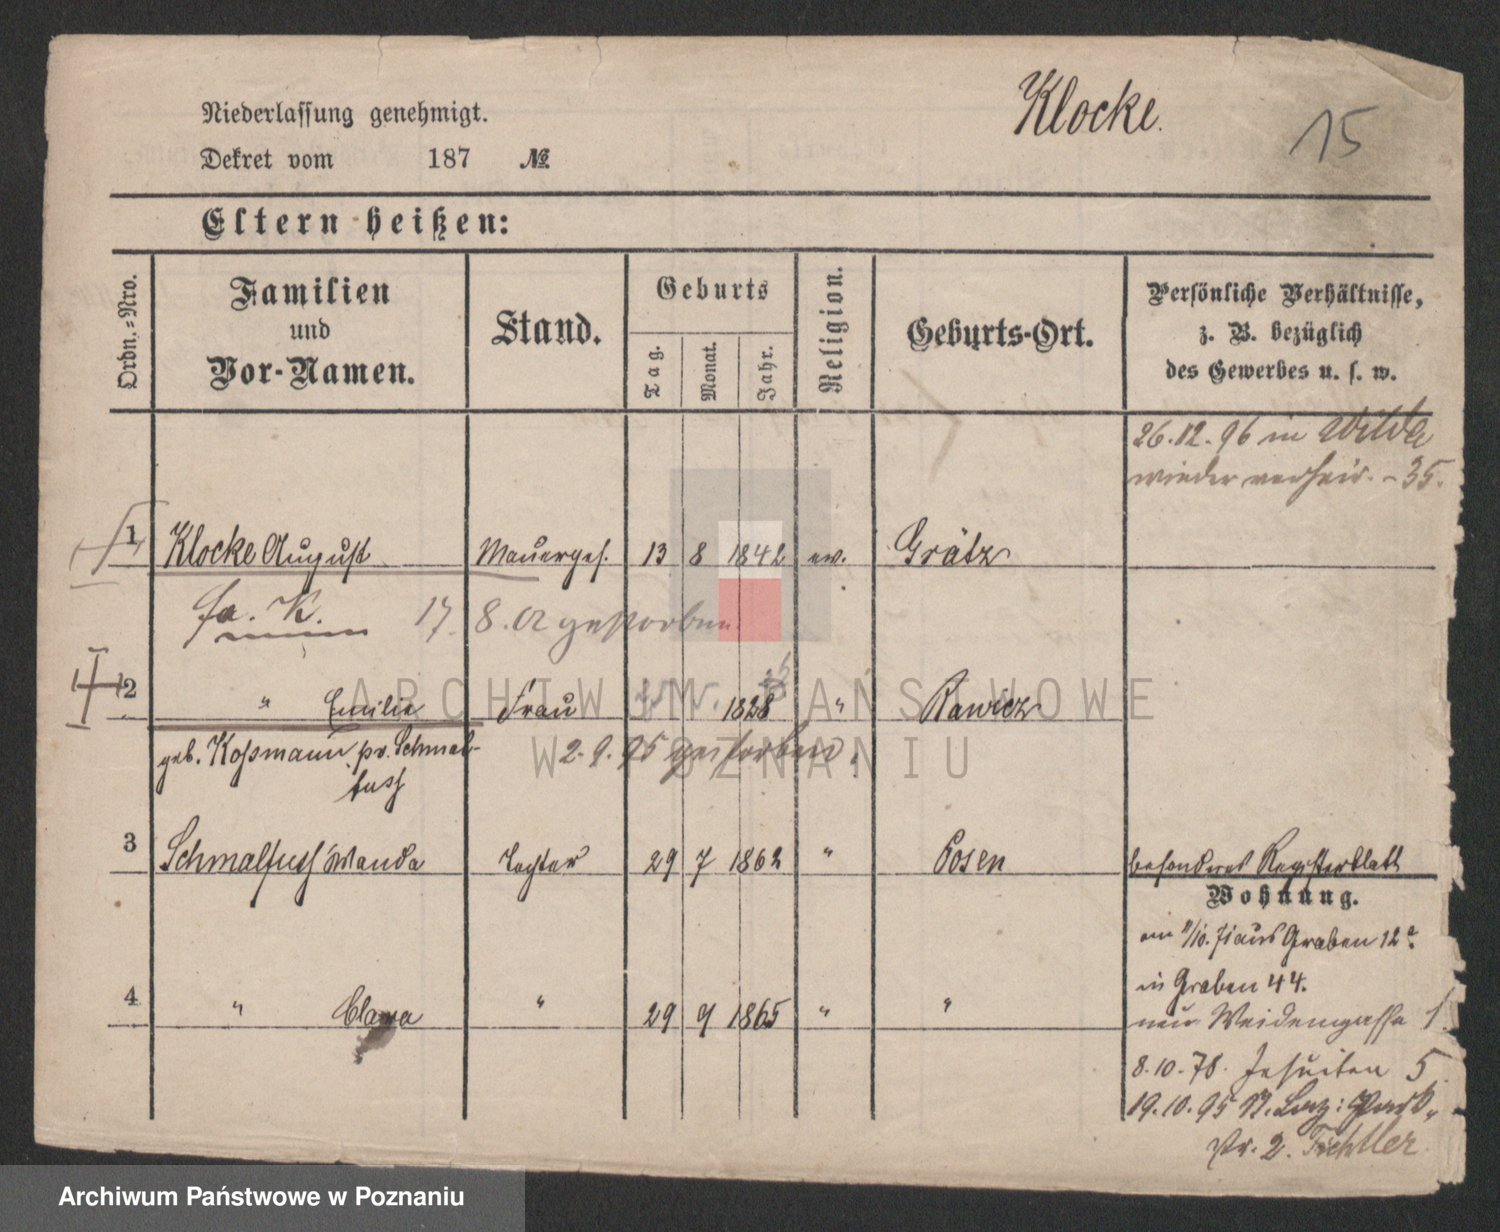 Klocke.
15
Niederlassung genehmigt.
Dekret vom 187 №
Eltern heißen:
Ordn.=Nro.
Familien
und
Vor-Namen.
Stand.
Geburts
Tag.
Monat.
Jahr.
Religion.
Geburts-Ort.
Persönliche Verhältnisse,
z. B. bezüglich
des Gewerbes u. s. w.
26.12.96 in Wilda
wieder verheir. - 35.
1 Klocke August Mauerges. 13 8 1842 ev. Grätz
17. 8. 02 gestorben
2 " Emilie Frau 1828 " Rawicz
geb. Kossmann pr. Schmal-
fuss
2. 9. 95 gestorben.
3 Schmalfuss Wanda Tochter 29 7 1862 " Posen besonderes Registerblatt
Wohnung.
Graben 12a
4 " Clara " 29 9 1865 " "
in Graben 44.
Weidengasse 1.
8.10.78. Jesuiten 5
19.10.95 St. Laz: Park-
Str. 2.
ARCHIWUM PAŃSTWOWE
W POZNANIU
Archiwum Państwowe w Poznaniu